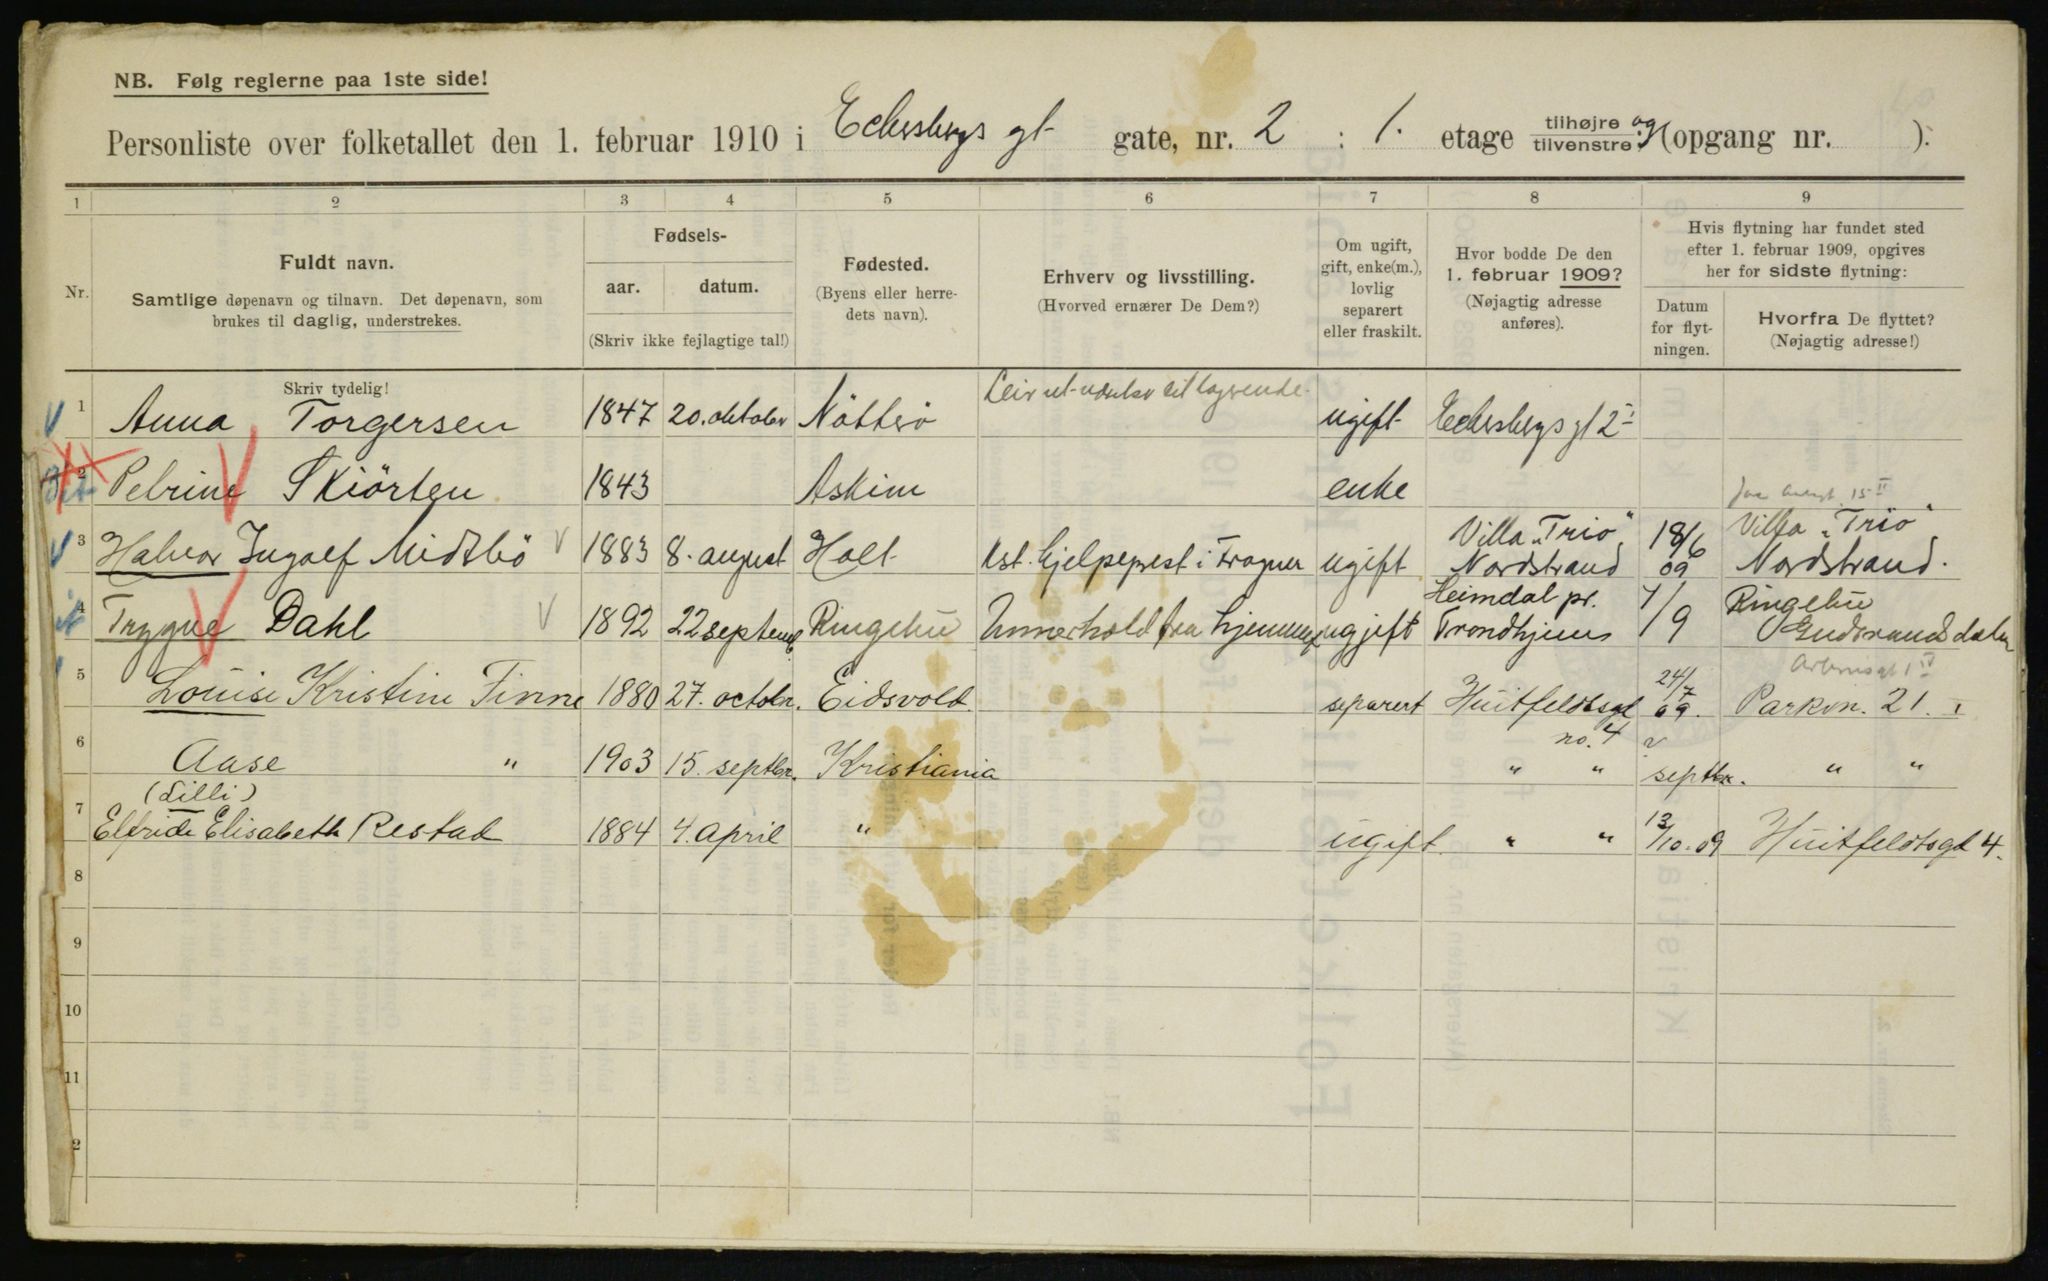 NB. Følg reglerne paa 1ste side!
Personliste over folketallet den 1. februar 1910 i Eckersbergs gt gate, nr. 2 : 1. etage tilhøjre og tilvenstre (opgang nr. ).
1 2 3 4 5 6 7 8 9
Nr.
Fuldt navn.
Samtlige døpenavn og tilnavn. Det døpenavn, som
brukes til daglig, understrekes.
Skriv tydelig!
Fødsels-
aar. datum.
(Skriv ikke fejlagtige tal!)
Fødested.
(Byens eller herre-
dets navn).
Erhverv og livsstilling.
(Hvorved ernærer De Dem?)
Om ugift,
gift, enke(m.),
lovlig
separert
eller fraskilt.
Hvor bodde De den
1. februar 1909?
(Nøjagtig adresse
anføres).
Hvis flytning har fundet sted
efter 1. februar 1909, opgives
her for sidste flytning:
Datum
for flyt-
ningen.
Hvorfra De flyttet?
(Nøjagtig adresse!)
1 Anna Torgersen 1847 20. oktober Nötterö ugift Eckersbergs gt 2 I
2 Petrine Skiörten 1843 Askim enke
3 Halvor Ingolf Midtbö 1883 8. august Holt kst. hjelpeprest i Frogner ugift Villa "Trio" Nordstrand 18/6 09 Villa "Trio" Nordstrand.
4 Trygve Dahl 1892 22 septemb Ringebu Unnerhold fra hjemmet ugjift Heimdal pr. Trondhjem 1/9 Ringebu Gudbrandsdalen
5 Louise Kristine Finne 1880 27. octobr. Eidsvold separert Huitfeldtsgt no. 4 24/7 09. Parkvn. 21. I
6 Aase " 1903 15. septbr. Kristiania " " septbr. " "
7 (Lilli)
Elfride Elisabeth Restad 1884 4. april " ugift. " " 13/10.09 Huitfeldtsgt 4.
8
9
10
11
2